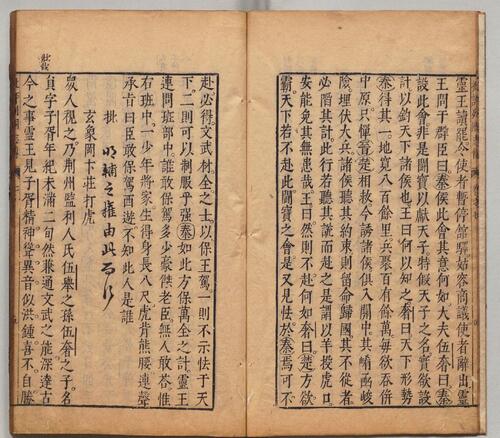 靈王讀罷令使者暫停館驛姑容商議使者辭出靈
王問于羣臣曰秦侯此會其意何如大夫伍奢曰秦
設此會非是鬪寶以獻天子特假天子之名實欲設
計以釣天下諸侯也王曰何以知之奢曰天下形勢
秦得其一地寬八百餘里兵聚百有餘萬每欲吞併
中原只憚晋楚相救今誘諸侯俱入關中其崤函峻
險埋伏大兵諸侯聽其約束則留命歸國其不從者
必陷其計此行若聽其謊而赴之是謂以羊投虎口
安能免其無患哉王曰然則不赴何如奢曰楚方欲
霸天下若不赴此鬪寶之會是又見怯於秦焉可不
赴必得文武材全之士以保王駕一則不示怯于天
下二則可以制服乎强秦如此方保萬全之計靈王
連問班部中誰敢保駕多少豪傑老臣無人敢答惟
右班中一少年將家生得身長八尺虎背熊腰連聲
承肯曰臣敢保駕西遊不知此人是誰
批 明輔之權由此而行
玄象岡卞莊打虎
衆人視之乃荆州監利人氏伍舉之孫伍奢之子名
負字子胥年紀未滿二旬然兼通文武之能深達古
今之事靈王見子胥精神聳異音似洪鍾喜不自勝